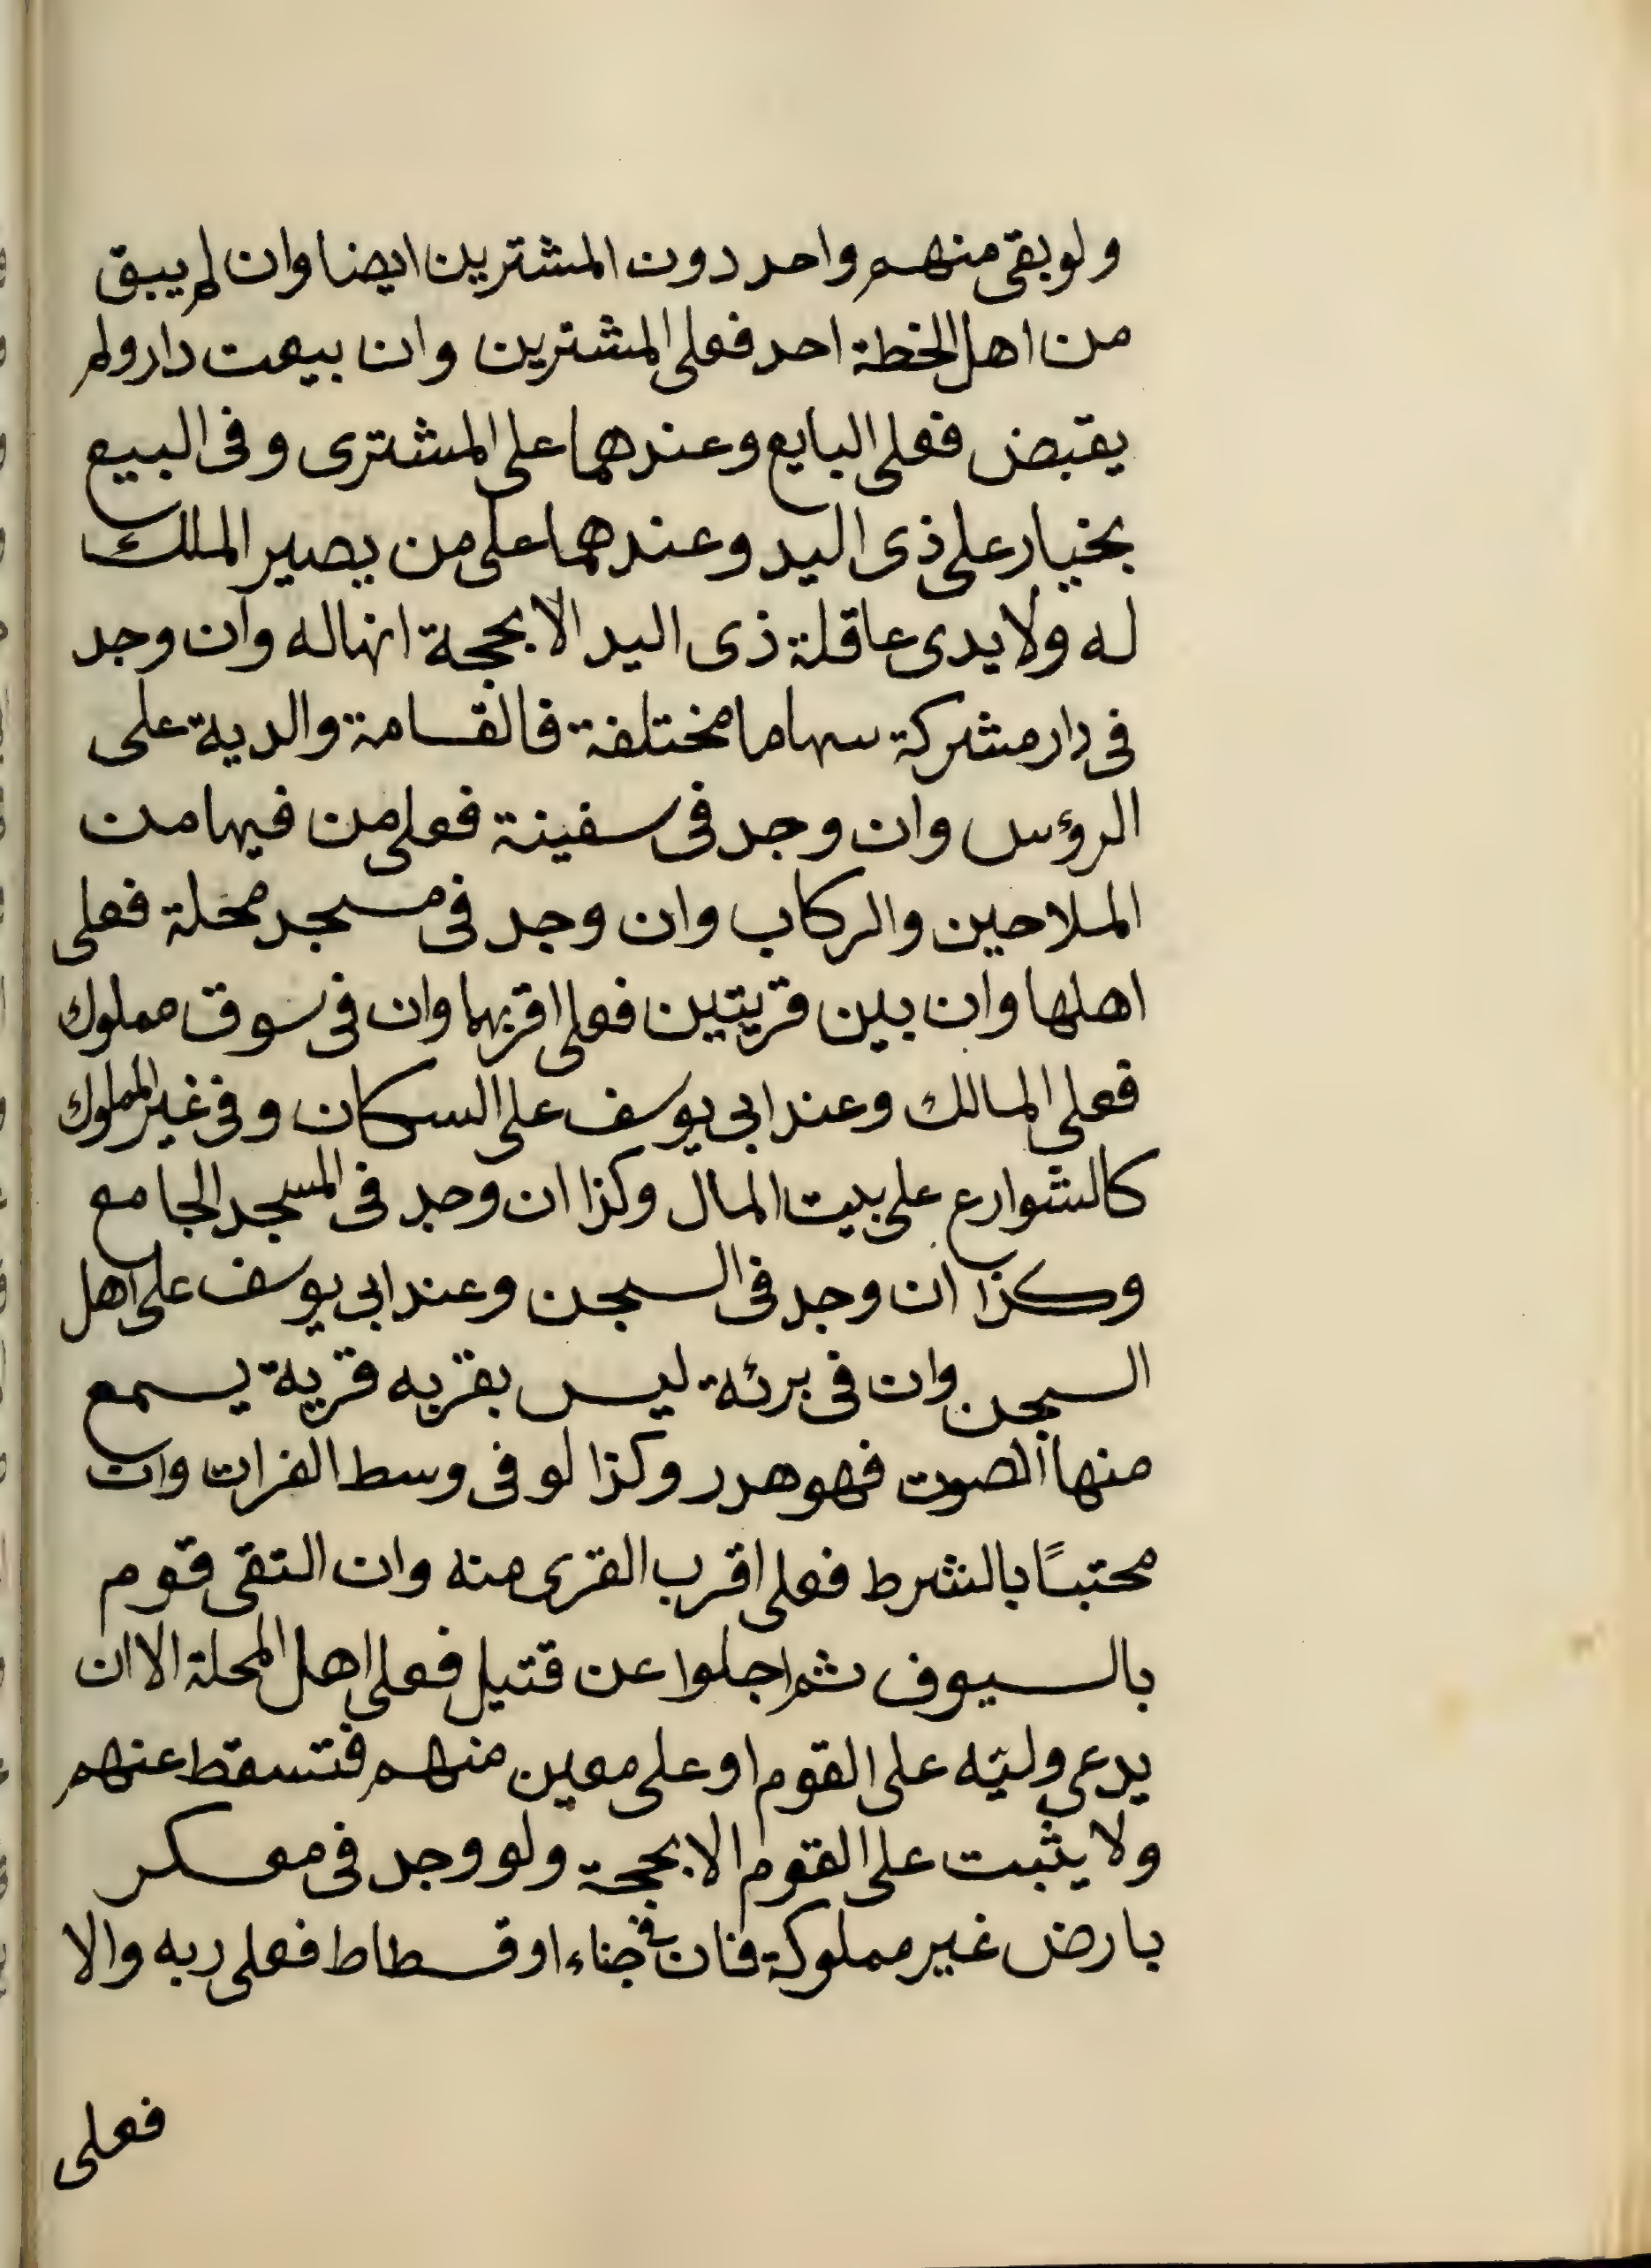 ولو بقى منهم واحد دون المشترين ايضا وان لم يبق
من اهل الخطة احد فعلى المشترين وان بيعت دار ولم
يقبض فعلى البايع وعندهما على المشترى وفى البيع
بخيار على ذى اليد وعندهما على من يصير الملك
له ولا يدى عاقلة ذى اليد الا بحجة انها له وان وجد
فى دار مشركة سهاما مختلفة فالقسامة والدية على
الرؤس وان وجد فى سفينة فعلى من فيها من
الملاحين والركاب وان وجد فى مسجد محلة فعلى
اهلها وان بين قريتين فعلى اقربهما وان فى سوق مملوك
فعلى المالك وعند ابى يوسف على السكان وفى غير المملوك
كالشوارع على بيت المال وكذا ان وجد فى المسجد الجامع
وكذا ان وجد فى السجن وعند ابى يوسف على اهل
السجن وان فى برئة ليس بقربه قرية يسمع
منها الصوت فهو هدر وكذا لو فى وسط الفرات وان
محتبسًا بالشرط فعلى اقرب القرى منه وان التقى قوم
بالسيوف ثم اجلوا عن قتيل فعلى اهل المحلة الا ان
يدعى وليّه على القوم او على معين منهم فتسقط عنهم
ولا يثبت على القوم الا بحجة ولو وجد فى معسكر
بارض غير مملوكة فان فى خباء او قسطاط فعلى ربه والا
فعلى